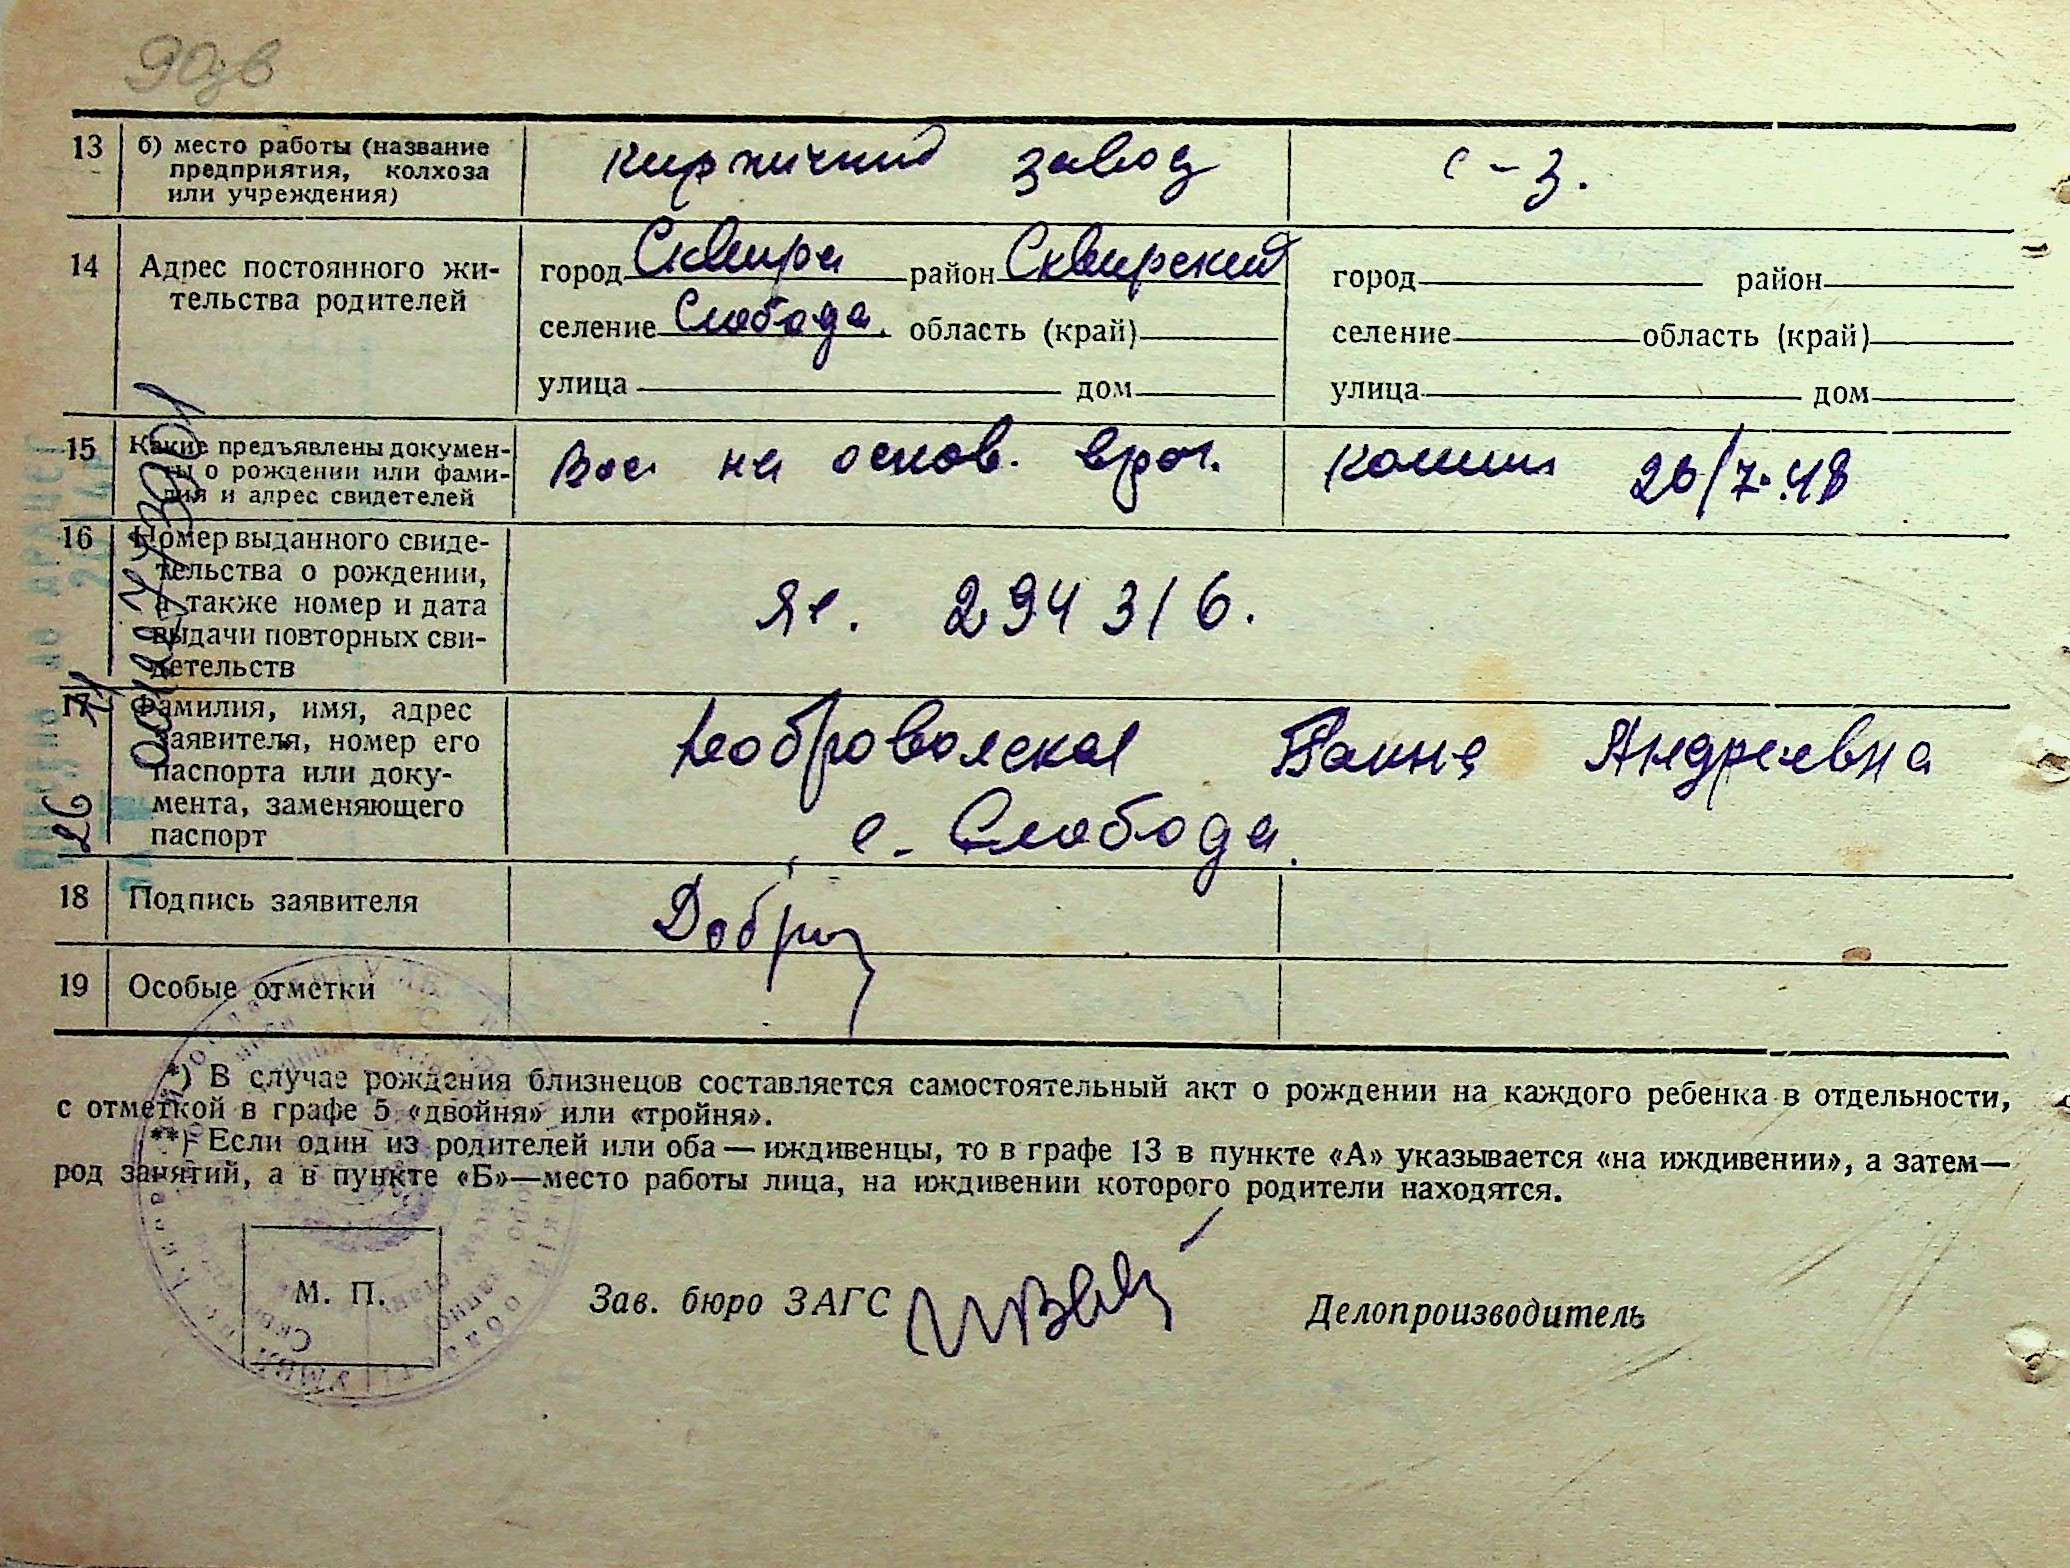 90зв
13 б) место работы (название
предприятия, колхоза
или учреждения)
Кирпичний завод
с-з.
14 Адрес постоянного жи-
тельства родителей
город Сквира район Сквирский
селение Слобода. область (край)
улица дом
город район
селение область (край)
улица дом
15 Какие предъявлены докумен-
ты о рождении или фами-
лия и адрес свидетелей
Вос на основ. врач. комиш 26/7.48
16 Номер выданного свиде-
тельства о рождении,
а также номер и дата
выдачи повторных сви-
детельств
294316.
17 Фамилия, имя, адрес
заявителя, номер его
паспорта или доку-
мента, заменяющего
паспорт
Добровольская Ганна Андреевна
с. Слобода.
18 Подпись заявителя
Добро
19 Особые отметки
*) В случае рождения близнецов составляется самостоятельный акт о рождении на каждого ребенка в отдельности,
с отметкой в графе 5 «двойня» или «тройня».
**) Если один из родителей или оба — иждивенцы, то в графе 13 в пункте «А» указывается «на иждивении», а затем—
род занятий, а в пункте «Б»—место работы лица, на иждивении которого родители находятся.
М. П.
Зав. бюро ЗАГС
Делопроизводитель